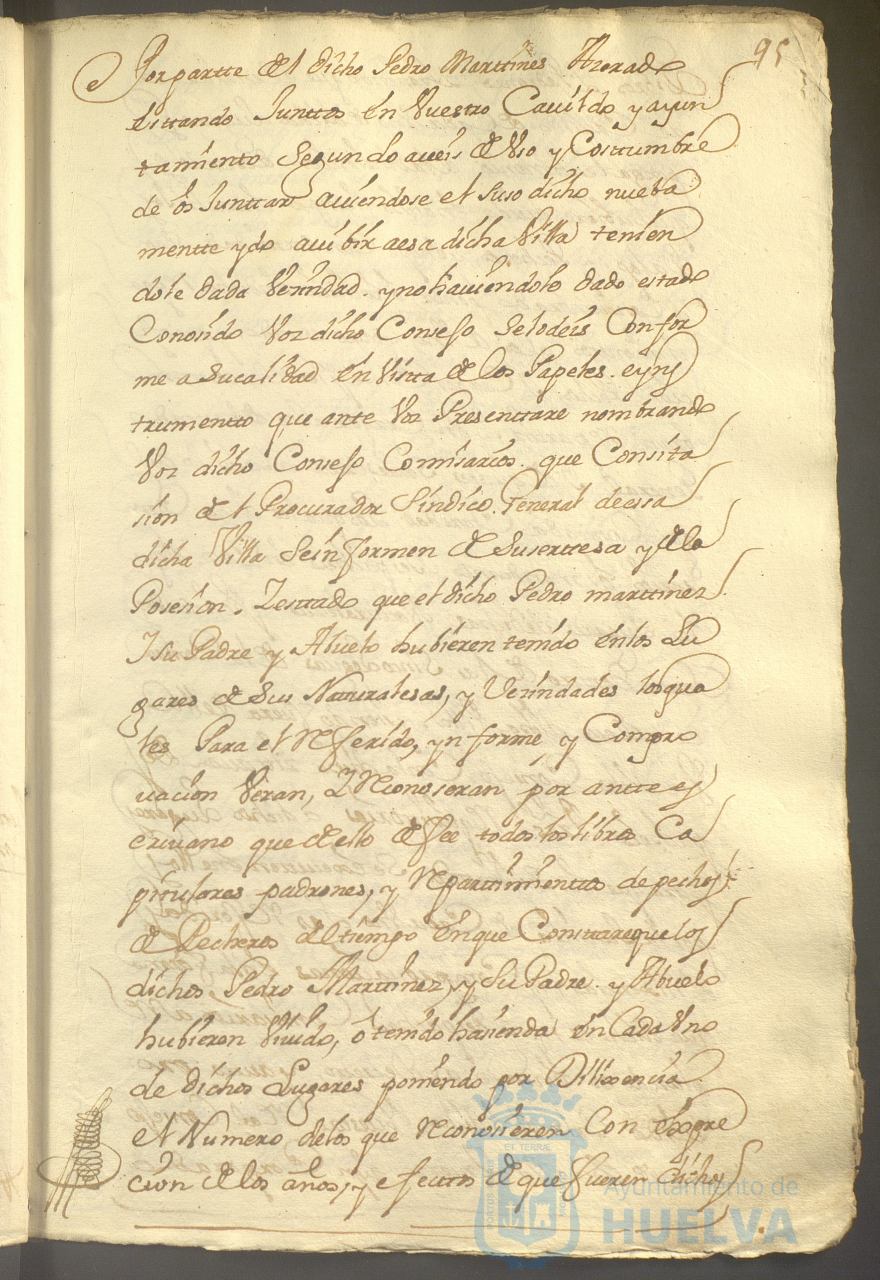 95
Por partte del dicho Pedro Marttines
esttando Junttos en Vuestro Cavildo y ayun
tamiento segun lo aveis de Uso y Costtumbre
de os Junttar aviendose el suso dicho nueba
mentte ydo a vibir a esa dicha Villa tenien
dole dada Vezindad. y no haviendole dado estado
Conosido Vos dicho Consejo se lo deis Confor
me a su calidad en Vista de los Papeles. e yns
trumentto que ante Vos Presenttare nombrando
Vos dicho Consejo Comisarios. que Con sita
sion del Procurador Sindico General de esa
dicha Villa se informen de su sertteza y de la
Posesion. Y esttado que el dicho Pedro marttinez
Y su Padre y Abuelo hubieren tenido en los Lu
gares de sus Naturalesas, y Vezindades los qua
les Para el Referido, ynforme, y Compro
vacion Veran, Y Reconoseran por antte es
crivano que de ello de fee todos los libros Ca
pitulares padrones, y Reparttimienttos de pechos
de Pecheros del tiempo en que Consttare que los
dichos Pedro Marttinez, y su Padre. y Abuelo
hubieren Vivido, o tenido hasienda en Cada Uno
de dichos Lugares poniendo por Dilixencia
el Numero de los que Reconosieren Con Expre
cion de los años, y efectos de que fueren dichos
Ayuntamiento de
HUELVA